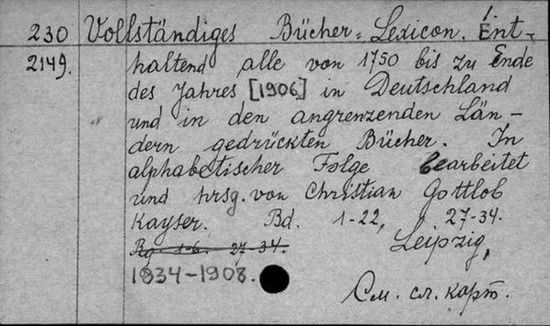 230 Vollständiges Bücher-Lexicon. Ent-
2149. haltend alle von 1750 bis zu Ende
des Jahres [1906] in Deutschland
und in den angrenzenden Län-
dern gedrückten Bücher. In
alphabetischer Folge bearbeitet
und hrsg. von Christian Gottlob
Kayser. Bd. 1-22, 27-34.
Rg 1-6. 27-34. Leipzig,
1834-1908.
См. сл. карт.